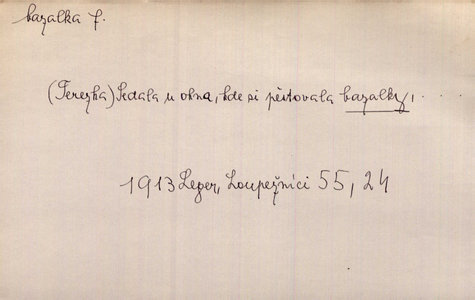 bazalka f.
(Terezka) Sedala u okna, kde si pěstovala bazalky, ...
1913 Leger, Loupežníci 55, 24